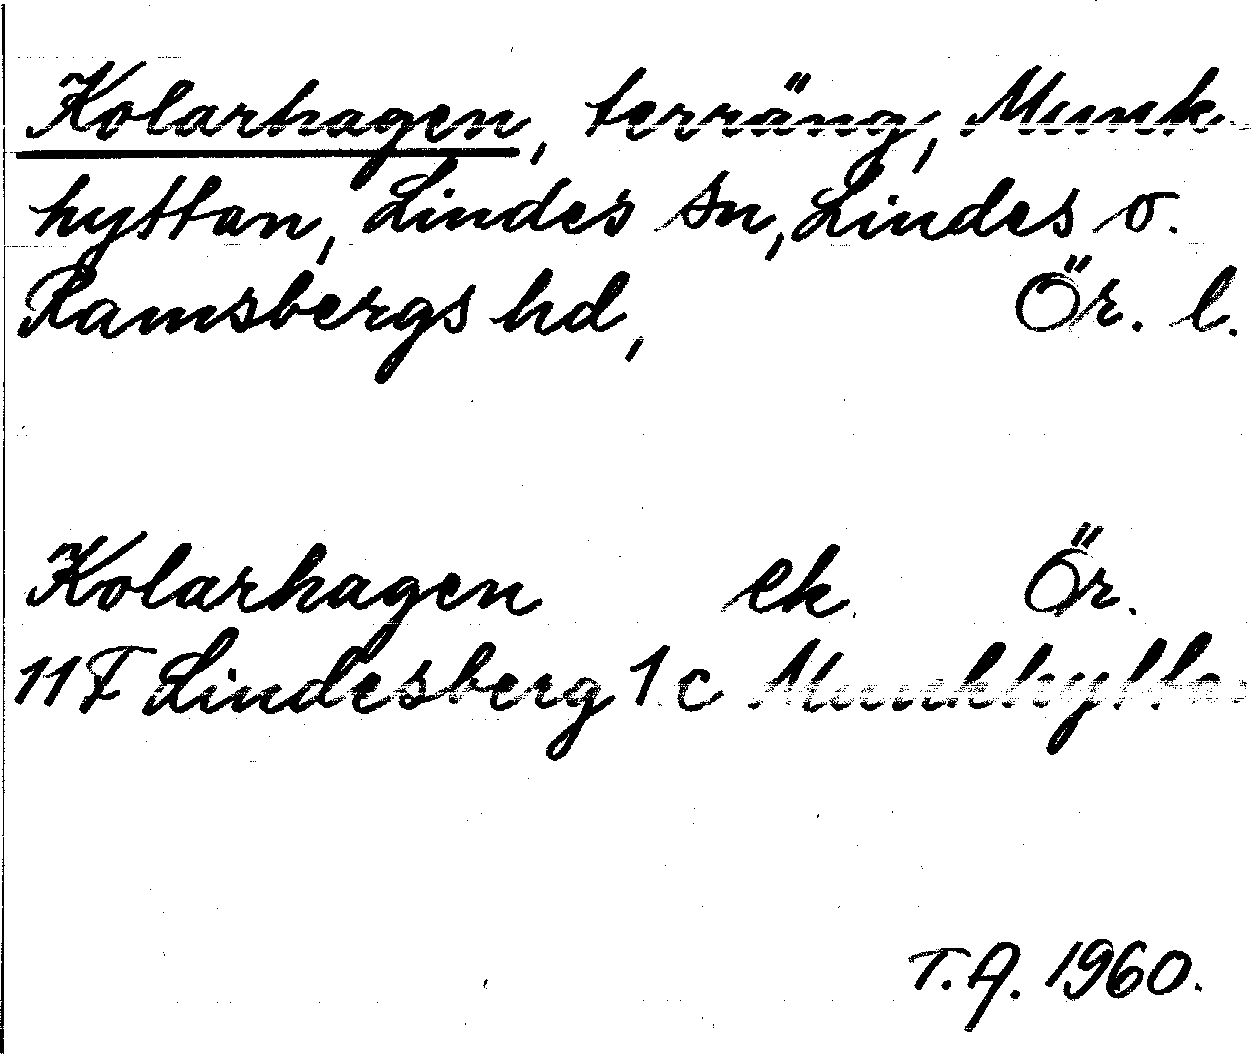 Kolarhagen, terräng, Munk-
hyttan, Lindes sn, Lindes o.
Ramsbergs hd, Ör. l.
Kolarhagen ek. Ör.
11F Lindesberg 1 c Munkhyttan
T.A. 1960.